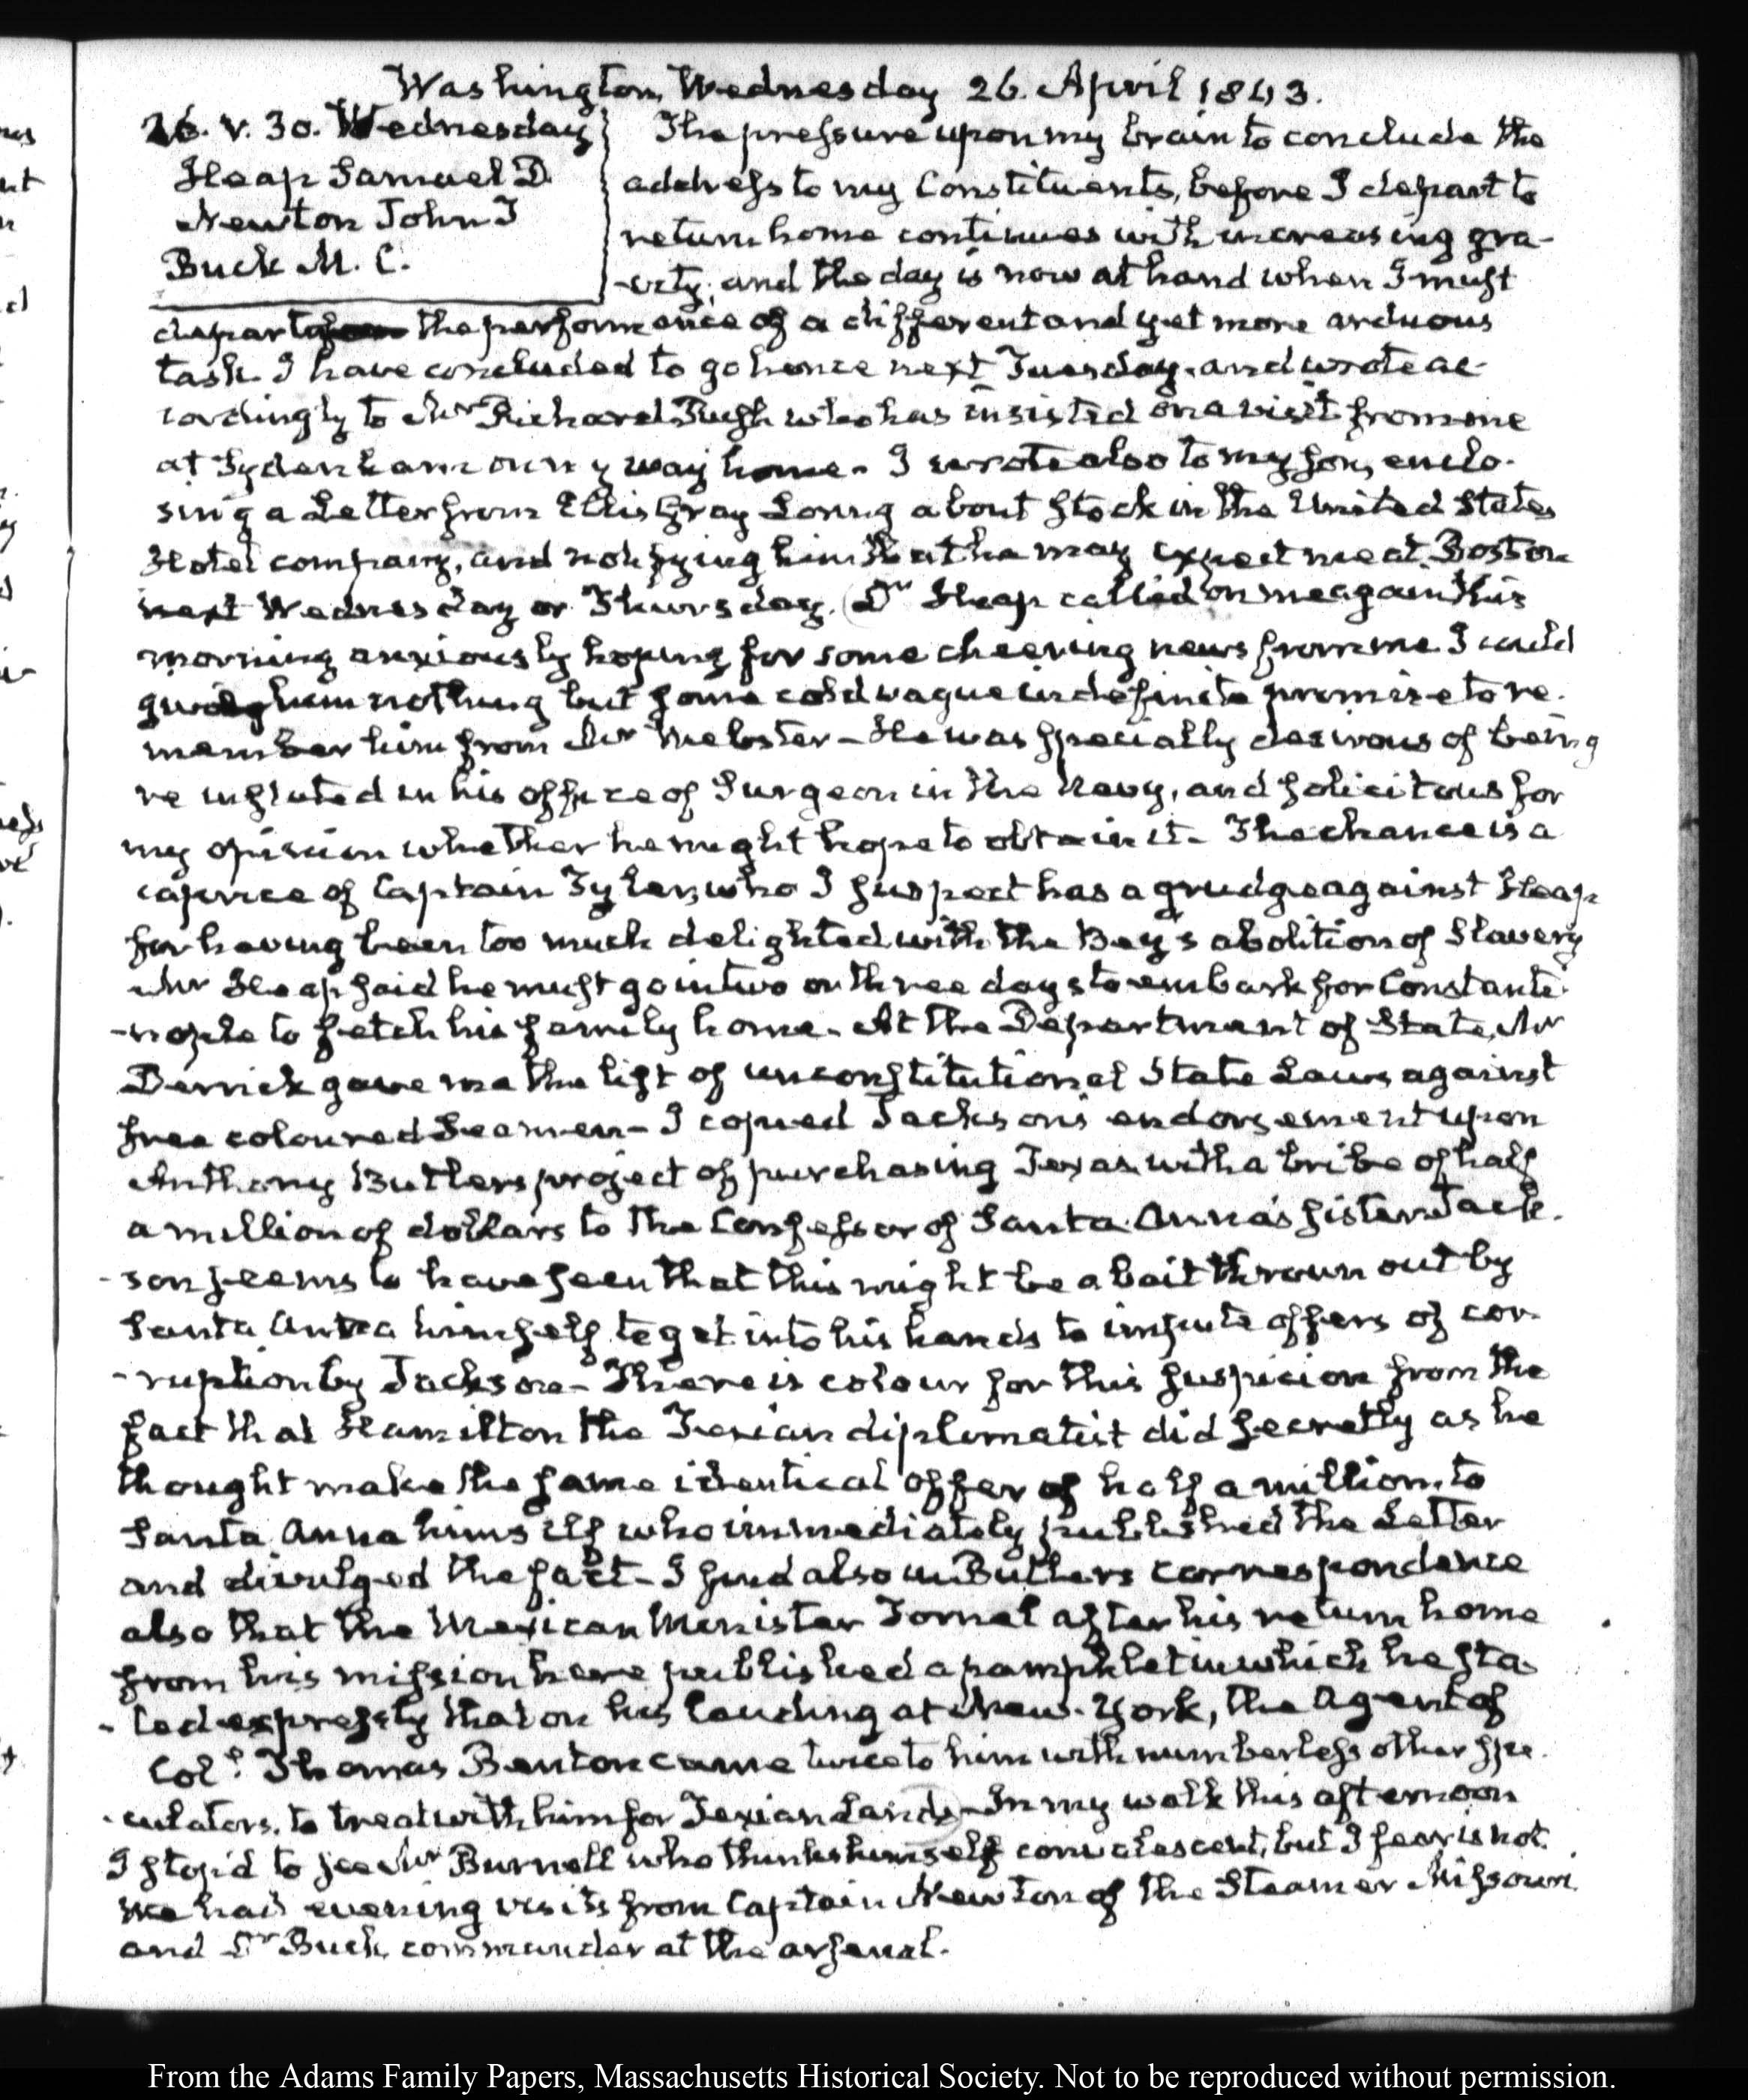 Washington, Wednesday 26. April 1843.
26. V. 30. Wednesday
Heap Samuel D
Newton John T
Buck M. C.
The pressure upon my brain to conclude the
address to my Constituents, before I depart to
return home continues with increasing gra-
-vity, and the day is now at hand when I must
depart the performance of a different and yet more arduous
task. I have concluded to go hence next Tuesday, and wrote ac-
cordingly to Mr Richard Rush who has insisted on a visit from me
at Sydenham on my way home. I wrote also to my Son, enclo-
sing a Letter from Ellis Gray Loring about Stock in the United States
Hotel company, and notifying him that he may expect me at Boston
next Wednesday or Thursday. Dr Heap called on me again this
morning anxiously hoping for some cheering news from me. I could
give him nothing but some cold vague indefinite promise to re-
member him from Mr Webster – He was specially desirous of being
re instated in his office of Surgeon in the Navy, and solicitous for
my opinion whether he might hope to obtain it – The chance is a
caprice of Captain Tyler, who I suspect has a grudge against Heap
for having been too much delighted with the Bey's abolition of Slavery
Mr Heap said he must go in two or three days to embark for Constanti-
-nople to fetch his family home – At the Department of State, Mr
Derrick gave me the list of unconstitutional State Laws against
free coloured Seamen – I copied Jackson's endorsement upon
Anthony Butlers project of purchasing Texas with a bribe of half
a million of dollars to the Confessor of Santa Anna's sister. Jack-
-son seems to have seen that this might be a bait thrown out by
Santa Anna himself to get into his hands to impute offers of cor-
-ruption by Jackson – There is colour for this suspicion from the
fact that Hamilton the Texian diplomatist did secretly as he
thought make the same identical offer of half a million, to
Santa Anna himself who immediately published the Letter
and divulged the fact – I find also in Butlers correspondence
also that the Mexican Minister Tornel after his return home
from his mission here published a pamphlet in which he sta-
-ted expressly that on his landing at New-York, the Agent of
Coll. Thomas Benton came twice to him with numberless other spe-
-culators, to treat with him for Texian Lands – In my walk this afternoon
I stop'd to see Mr Burnell who thinks himself convalescent, but I fear is not.
We had evening visits from Captain Newton of the Steamer Missouri
and Dr Buck, commander at the arsenal.
From the Adams Family Papers, Massachusetts Historical Society. Not to be reproduced without permission.